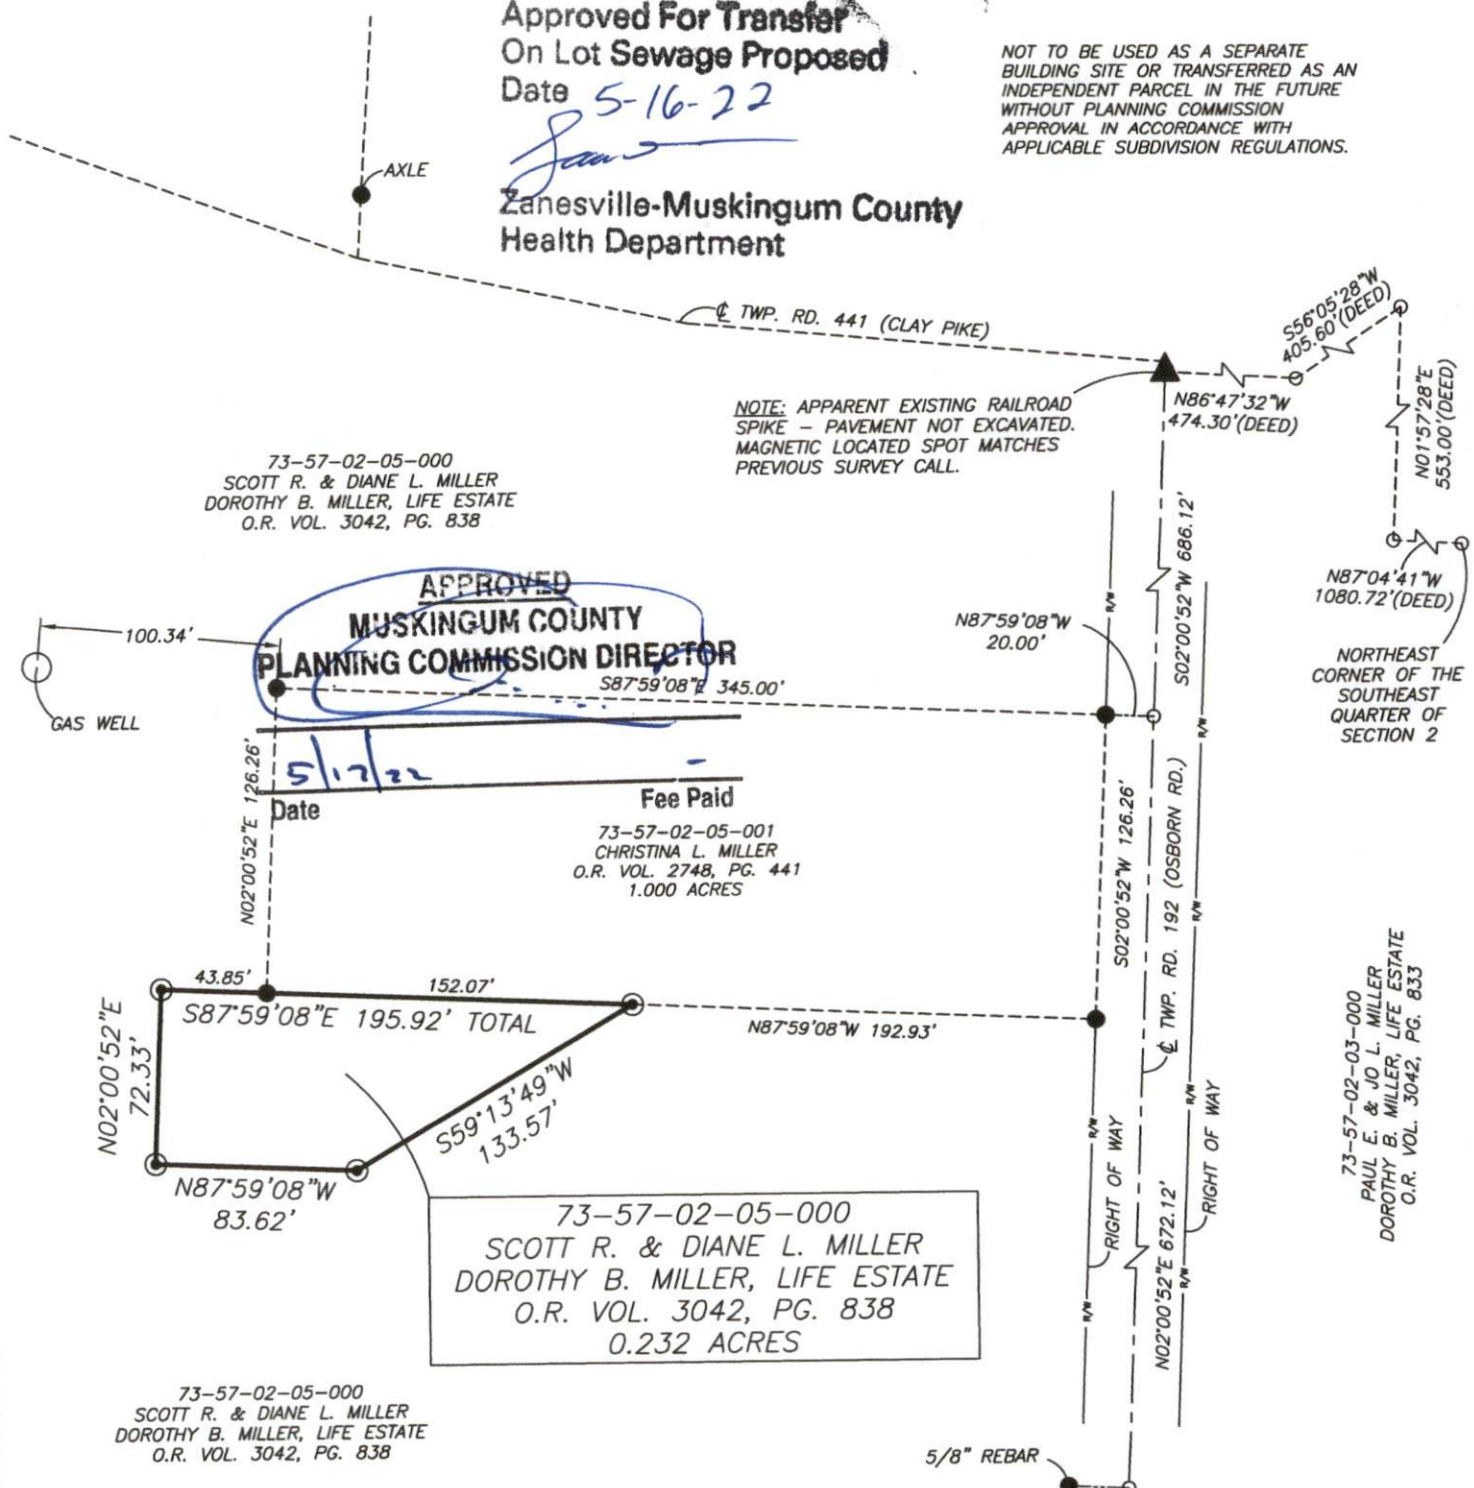 Approved For Transfer
On Lot Sewage Proposed
Date 5-16-22
Zanesville-Muskingum County
Health Department
NOT TO BE USED AS A SEPARATE
BUILDING SITE OR TRANSFERRED AS AN
INDEPENDENT PARCEL IN THE FUTURE
WITHOUT PLANNING COMMISSION
APPROVAL IN ACCORDANCE WITH
APPLICABLE SUBDIVISION REGULATIONS.
AXLE
℄ TWP. RD. 441 (CLAY PIKE)
S56°05'28"W
405.60'(DEED)
N86°47'32"W
474.30'(DEED)
N01°57'28"E
553.00'(DEED)
NOTE: APPARENT EXISTING RAILROAD
SPIKE – PAVEMENT NOT EXCAVATED.
MAGNETIC LOCATED SPOT MATCHES
PREVIOUS SURVEY CALL.
73-57-02-05-000
SCOTT R. & DIANE L. MILLER
DOROTHY B. MILLER, LIFE ESTATE
O.R. VOL. 3042, PG. 838
S02°00'52"W 686.12'
N87°04'41"W
1080.72'(DEED)
NORTHEAST
CORNER OF THE
SOUTHEAST
QUARTER OF
SECTION 2
APPROVED
MUSKINGUM COUNTY
PLANNING COMMISSION DIRECTOR
100.34'
GAS WELL
S87°59'08"E 345.00'
N87°59'08"W
20.00'
R/W
R/W
5/17/22 -
Date Fee Paid
N02°00'52"E 126.26'
73-57-02-05-001
CHRISTINA L. MILLER
O.R. VOL. 2748, PG. 441
1.000 ACRES
S02°00'52"W 126.26'
℄ TWP. RD. 192 (OSBORN RD.)
R/W
43.85'
152.07'
S87°59'08"E 195.92' TOTAL
N87°59'08"W 192.93'
N02°00'52"E
72.33'
S59°13'49"W
133.57'
N87°59'08"W
83.62'
R/W
R/W
RIGHT OF WAY
RIGHT OF WAY
73-57-02-03-000
PAUL E. & JO L. MILLER
DOROTHY B. MILLER, LIFE ESTATE
O.R. VOL. 3042, PG. 833
73-57-02-05-000
SCOTT R. & DIANE L. MILLER
DOROTHY B. MILLER, LIFE ESTATE
O.R. VOL. 3042, PG. 838
0.232 ACRES
R/W
R/W
N02°00'52"E 672.12'
73-57-02-05-000
SCOTT R. & DIANE L. MILLER
DOROTHY B. MILLER, LIFE ESTATE
O.R. VOL. 3042, PG. 838
5/8" REBAR